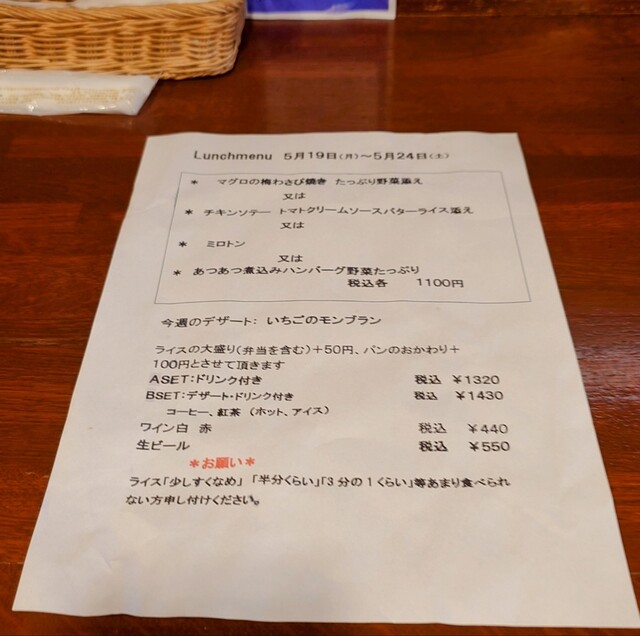 Lunchmenu 5月19日(月)～5月24日(土)
＊ マグロの梅わさび焼き たっぷり野菜添え
又は
＊ チキンソテー トマトクリームソースバターライス添え
又は
＊ ミロトン
又は
＊ あつあつ煮込みハンバーグ野菜たっぷり
税込各 1100円
今週のデザート: いちごのモンブラン
ライスの大盛り(弁当を含む)＋50円、パンのおかわり＋
100円とさせて頂きます
ASET:ドリンク付き 税込 ￥1320
BSET:デザート・ドリンク付き 税込 ￥1430
コーヒー、紅茶 (ホット、アイス)
ワイン白 赤 税込 ￥440
生ビール 税込 ￥550
＊お願い＊
ライス「少しすくなめ」「半分くらい」「3分の1くらい」等あまり食べられ
ない方申し付けください。